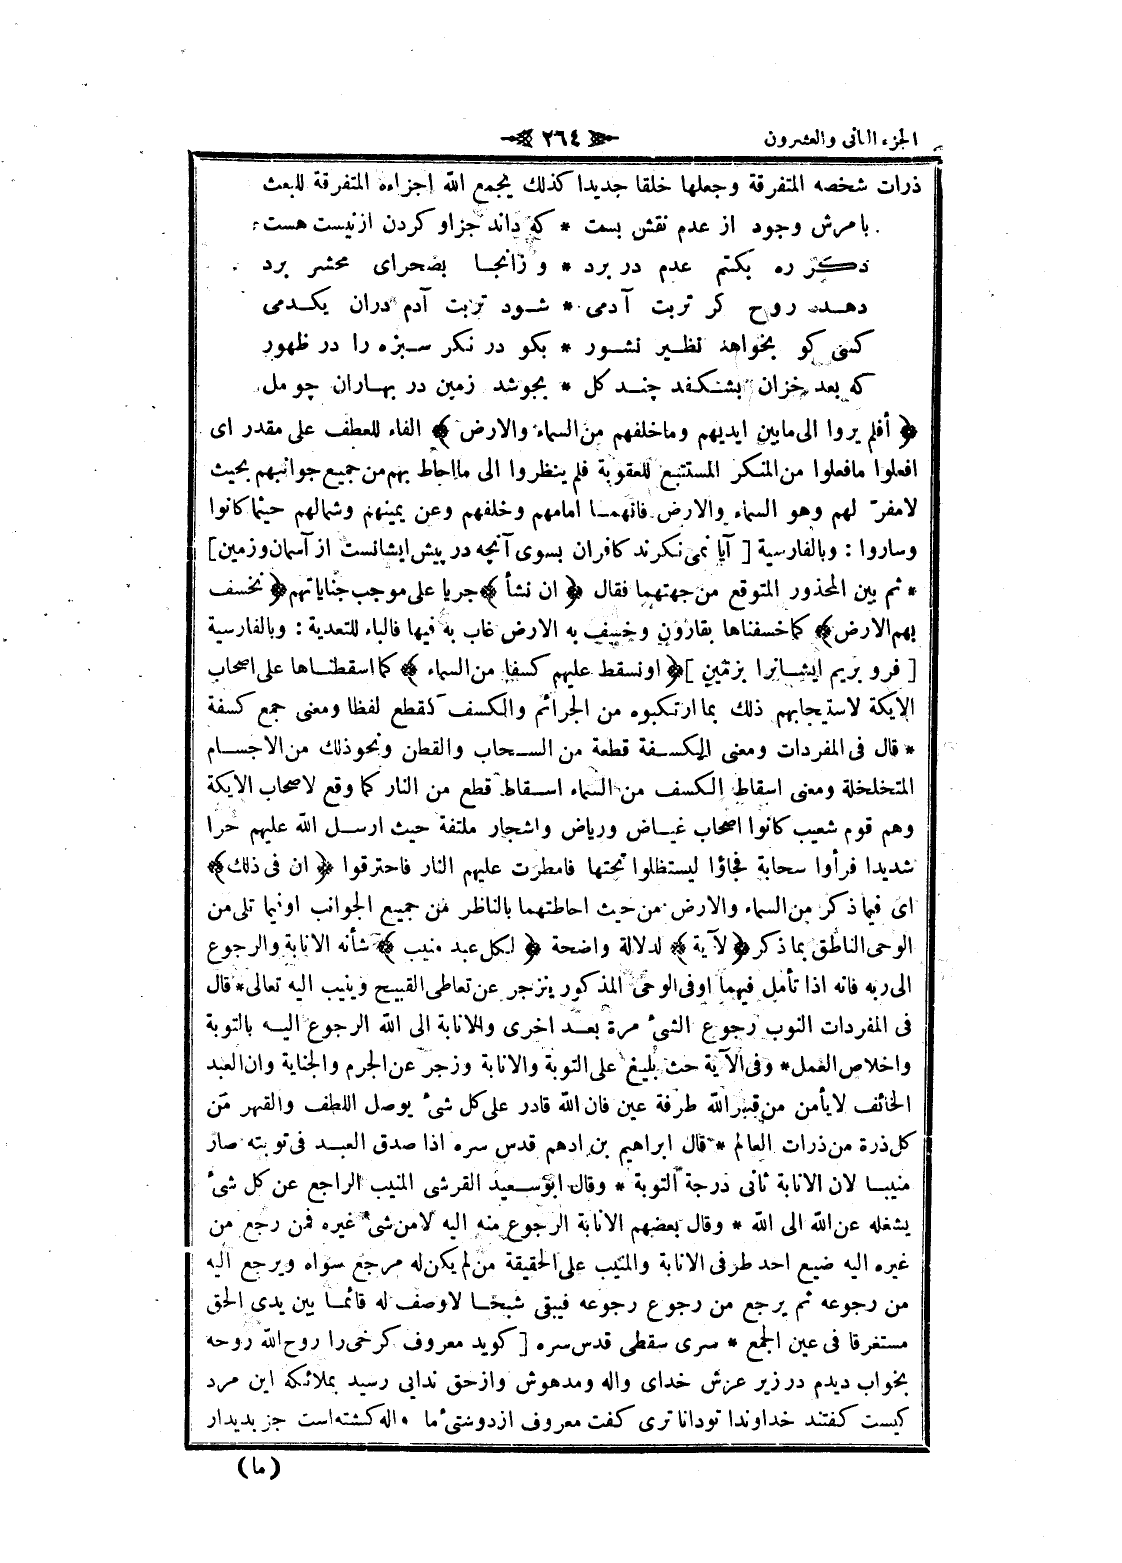 الجزء الثانى والعشرون
٢٦٤
ذرات شخصه المتفرقة وجعلها خلقا جديدا كذلك يجمع الله اجزاءه المتفرقة للبعث
بامرش وجود از عدم نقش بست * كه داند جزاو كردن ازنيست هست
دكر ره بكتم عدم در برد * وزانجا بصحراى محشر برد
دهد روح كر تربت آدمى * شود تربت آدم دران يكدمى
كسى كو بخواهد نظير نشور * بكو در نكر سبزه را در ظهور
كه بعد خزان بشنكفد چند كل * بجوشد زمين در بهاران چو مل
﴿ أفلم يروا الى مابين ايديهم وماخلفهم من السماء والارض ﴾ الفاء للعطف على مقدر اى
افعلوا مافعلوا من المنكر المستتبع للعقوبة فلم ينظروا الى مااحاط بهم من جميع جوانبهم بحيث
لامفر لهم وهو السماء والارض فانهما امامهم وخلفهم وعن يمينهم وشمالهم حيثما كانوا
وساروا : وبالفارسية [ آيا نمى نكرند كافران بسوى آنچه در پيش ايشانست از آسمان وزمين ]
* ثم بين المحذور المتوقع من جهتهما فقال ﴿ ان نشأ ﴾ جريا على موجب جناياتهم ﴿ نخسف
بهم الارض ﴾ كما خسفناها بقارون وخسف به الارض غاب به فيها فالباء للتعدية : وبالفارسية
[ فرو بريم ايشانرا بزمين ] ﴿ او نسقط عليهم كسفا من السماء ﴾ كما اسقطناها على اصحاب
الايكة لاستيجابهم ذلك بما ارتكبوه من الجرائم والكسف كقطع لفظا ومعنى جمع كسفة
* قال فى المفردات ومعنى الكسفة قطعة من السحاب والقطن ونحو ذلك من الاجسام
المتخلخلة ومعنى اسقاط الكسف من السماء اسقاط قطع من النار كما وقع لاصحاب الايكة
وهم قوم شعيب كانوا اصحاب غياض ورياض واشجار ملتفة حيث ارسل الله عليهم حرا
شديدا فرأوا سحابة فجاؤا ليستظلوا تحتها فامطرت عليهم النار فاحترقوا ﴿ ان فى ذلك ﴾
اى فيما ذكر من السماء والارض من حيث احاطتهما بالناظر من جميع الجوانب او فيما تلى من
الوحى الناطق بما ذكر ﴿ لآية ﴾ لدلالة واضحة ﴿ لكل عبد منيب ﴾ شأنه الانابة والرجوع
الى ربه فانه اذا تأمل فيهما او فى الوحى المذكور ينزجر عن تعاطى القبيح وينيب اليه تعالى * قال
فى المفردات النوب رجوع الشئ مرة بعد اخرى والانابة الى الله الرجوع اليه بالتوبة
واخلاص العمل * وفى الآية حث بليغ على التوبة والانابة وزجر عن الجرم والجناية وان العبد
الخائف لايأمن من قهر الله طرفة عين فان الله قادر على كل شئ يوصل اللطف والقهر من
كل ذرة من ذرات العالم * قال ابراهيم بن ادهم قدس سره اذا صدق العبد فى توبته صار
منيبا لان الانابة ثانى درجة التوبة * وقال ابو سعيد القرشى المنيب الراجع عن كل شئ
يشغله عن الله الى الله * وقال بعضهم الانابة الرجوع منه اليه لامن شئ غيره فمن رجع من
غيره اليه ضيع احد طرفى الانابة والمنيب على الحقيقة من لم يكن له مرجع سواه ويرجع اليه
من رجوعه ثم يرجع من رجوع رجوعه فيبقى شبحا لاوصف له قائما بين يدى الحق
مستغرقا فى عين الجمع * سرى سقطى قدس سره [ كويد معروف كرخى را روح الله روحه
بخواب ديدم در زير عرش خداى واله ومدهوش واز حق ندايى رسيد بملائكه اين مرد
كيست كفتند خداوندا تو داناترى كفت معروف از دوستئ ما واله كشته است جز بديدار
( ما )